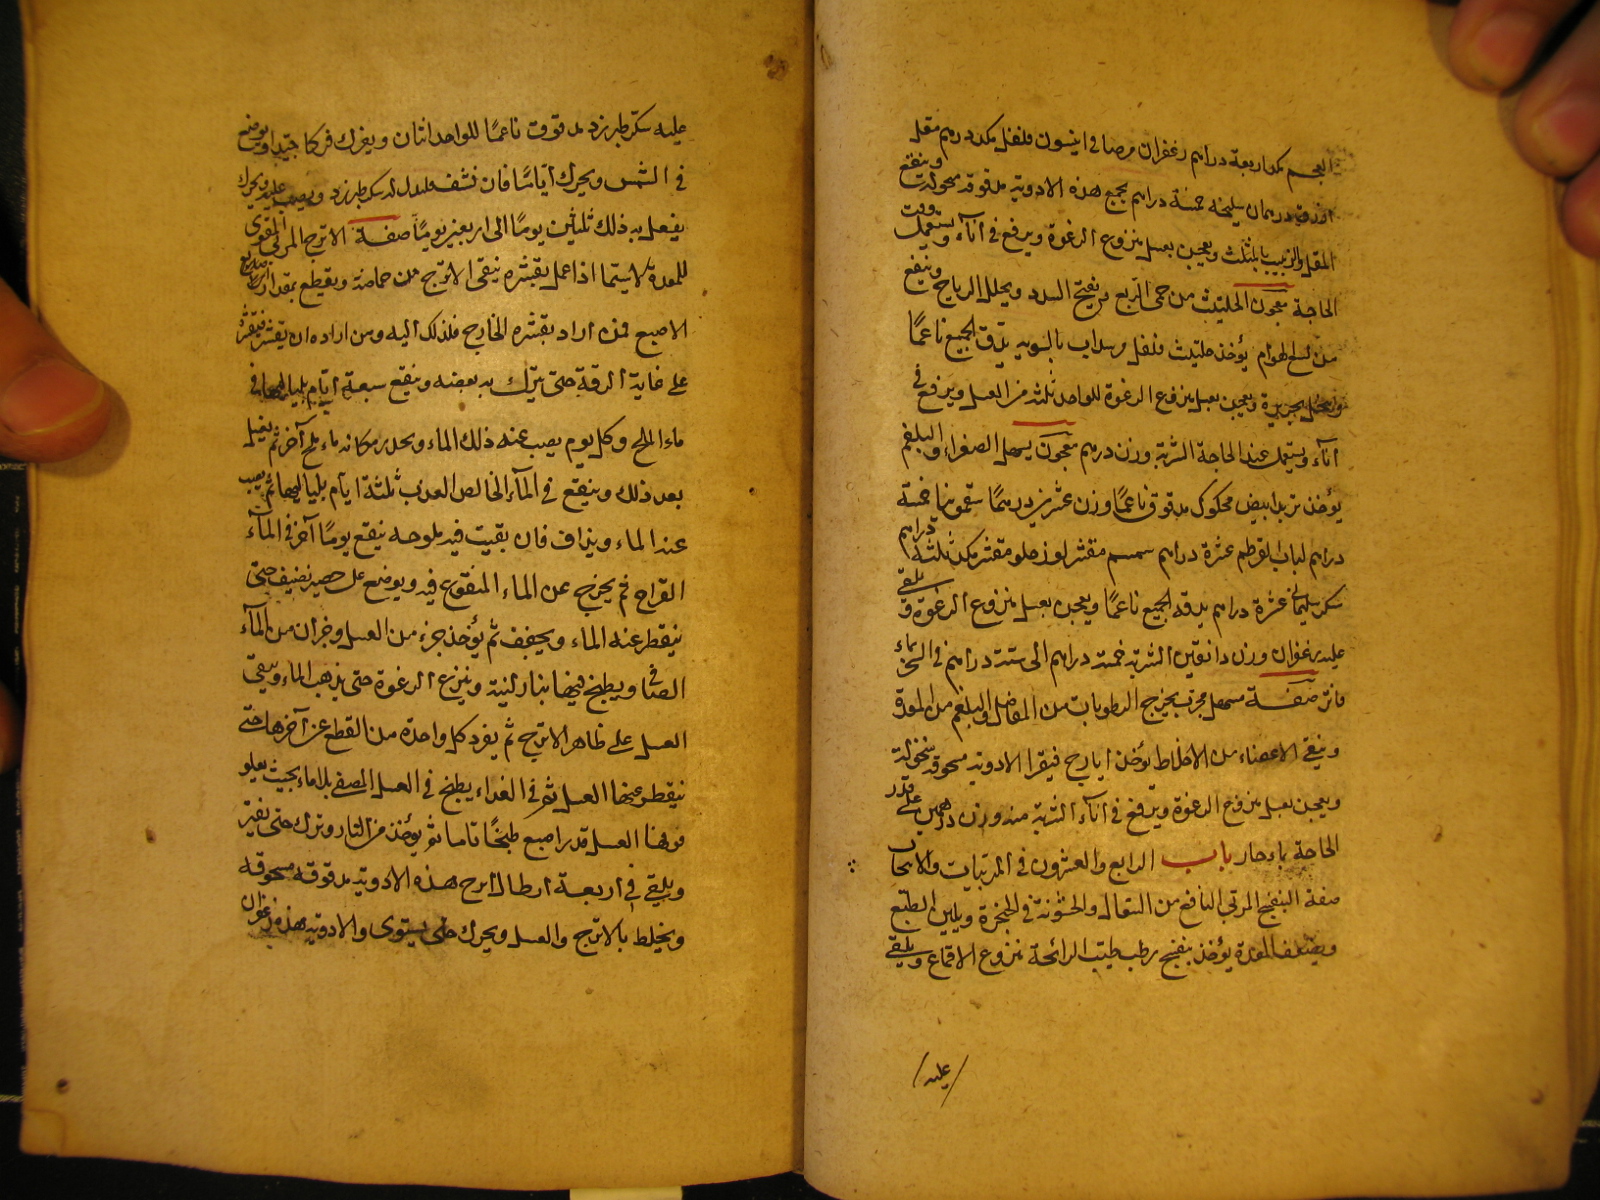 العجم كد اربعة دراهم زعفران مرصافي انيسون فلفل مكد درهم مقل
ازرق درهمان سليخه خمسة دراهم يجمع هذه الادويه مدقوقه منخولة وينقع
المقل والزبيب بالمثلث ويعجن بعسل منزوع الرغوة ويرفع في اناء ويستعمل وقت
الحاجة معجون الحلتيث من حمى الربع ويفتح السدد ويحلل الرياح وينفع
من لسع الهوام يؤخذ حلتيث فلفل وسداب بالسويه يدق الجميع ناعمًا
وينخل بحريرة ويعجن بعسل منزوع الرغوة للواحد ثلثه من العسل ويرفع في
اناء ويستعمل عند الحاجة الشربة وزن درهم معجون يسهل الصفراء والبلغم
يؤخذ تربد ابيض محكوك مدقوق ناعمًا وزن عشرين درهمًا سقمونيا خمسة
دراهم لباب القرطم عشرة دراهم سمسم مقشر لوز حلو مقشر مكد ثلثة دراهم
سكر سليماني عشرة دراهم يدقه الجميع ناعمًا ويعجن بعسل منزوع الرغوة ويلقى
عليه زعفران وزن دانقين الشربة خمسة دراهم الى ستة دراهم في السحر بماء
فاتر صفة مسهل مجرب يخرج الرطوبات من المفاصل والبلغم من المعدة
وينقي الاعضاء من الاخلاط يؤخذ ايارج فيقرا الادويه مسحوقه منخولة
ويعجن بعسل منزوع الرغوة ويرفع في اناء الشربة منه وزن درهمين على قدر
الحاجة بماء حار باب الرابع والعشرون في المربيات والانبجات
صفة البنفسج المربي النافع من السعال والخشونة في الحنجرة ويلين الطبع
ويضعف المعدة يؤخذ بنفسج رطب طيب الرائحة منزوع الاقماع ويلقى
عليه
عليه سكر طبرزد مدقوق ناعمًا للواحد اثنان ويفرك فركا جيدا ويوضع
في الشمس ويحرك ايامًا فان نشف فليبدل له سكر طبرزد ويصب عليه ويحرك
يفعل به ذلك ثلثين يومًا الى اربعين يومًا صفة الاترج المربى المقوى
للمعدة لا سيما اذا عمل بقشره ينقى الاترج من حماضه ويقطع بمقدار اربع
الاصبع فمن اراد بقشره الخارج فلذلك اليه ومن اراده ان يقشر فيقشر
على غاية الرقة حتى يترك به بعضه وينقع سبعة ايام بلياليها في
ماء الملح وكل يوم يصب عنه ذلك الماء ويجدد مكانه ماء ملح آخر ثم يغسل
بعد ذلك وينقع في الماء الخالص العذب ثلثة ايام بلياليها ثم يصب
عنه الماء ويذاق فان بقيت فيه ملوحه ينقع يومًا آخر في الماء
القراح ثم يخرج عن الماء المنقوع فيه ويوضع على حصير نضيف حتى
ينقطر عنه الماء ويجفف ثم يؤخذ جزء من العسل وجزآن من الماء
الصافي ويطبخ فيها بنار لينة وينزع الرغوة حتى يذهب الماء ويبقى
العسل على ظاهر الاترج ثم يفرد كل واحدة من القطع عن آخرها حتى
ينقطر عنها العسل ثم في الغداء يطبخ في العسل المصفى بلا ماء بحيث يعلو
فوقها العسل قدر اصبع طبخًا تاما ثم يؤخذ من النار ويترك حتى يفتر
ويلقى في اربعة ارطال اترج هذه الادويه مدقوقه مسحوقه
ويخلط بالاترج والعسل ويحرك حتى يستوى والادويه هذه زعفران